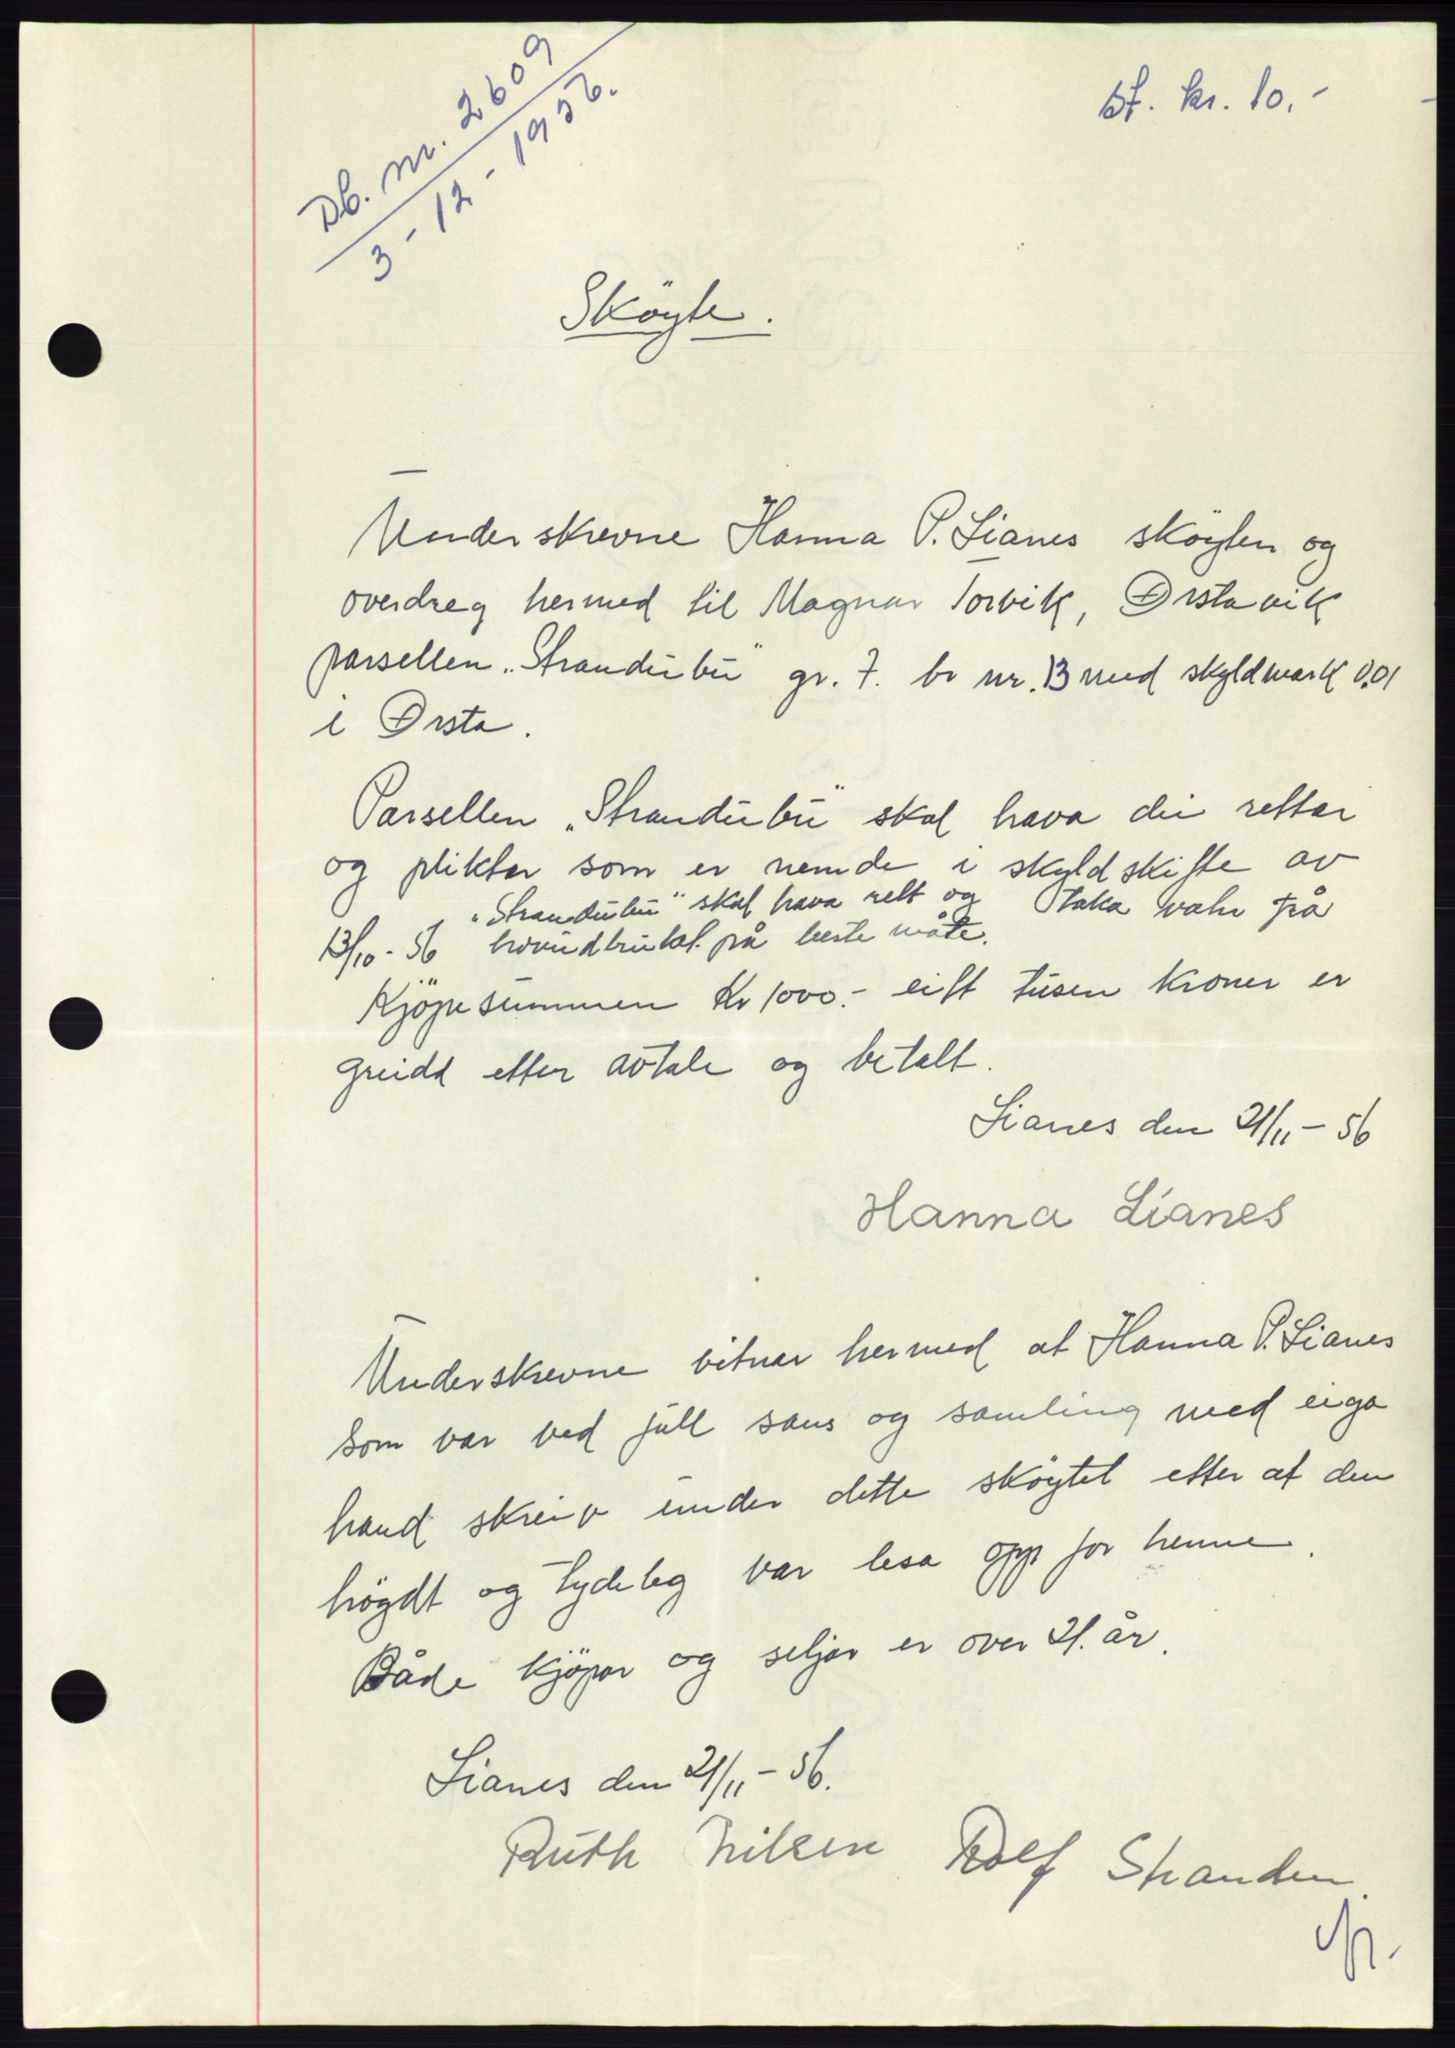 Db. nr. 2609
3-12-1956.
st. kr. 10.-
Sköyte.
Underskrevne Hanna P. Lianes sköyter og
overdreg hermed til Magnar Torvik, Ørstavik
parsellen "Strandebu" gr. 7. br nr. 13 med skyldmark 0.01
i Ørsta.
Parsellen "Strandebu" skal hava dei rettar
og pliktar som er nemde i skyldskifte av
13/10-56 "Strandebu" skal hava rett og taka vatn frå
hovudbruket på beste måte.
Kjöpesummen Kr 1000.- eitt tusen kroner er
greidd etter avtale og betalt.
Lianes den 21/11-56
Hanna Lianes
Underskrevne vitnar hermed at Hanna P. Lianes
som var ved full sans og samling med eiga
hand skreiv under dette sköytet etter at den
högdt og tydeleg var lesa opp for henne.
Både kjöpar og seljar er over 21. år.
Lianes den 21/11-56.
Ruth Nilsen Rolf Stranden.